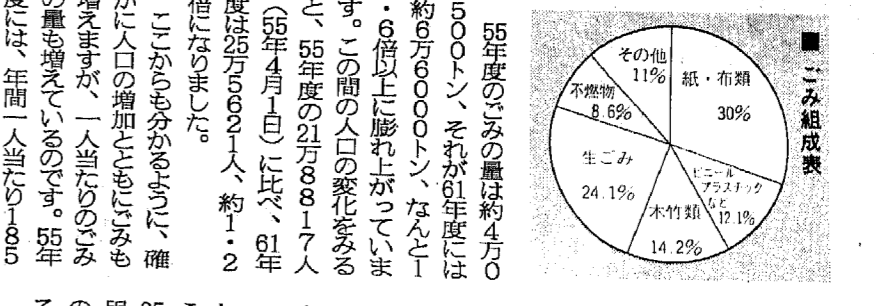 ■ごみ組成表
紙・布類
30%
ビニール
プラスチック
など
12.1%
木竹類
14.2%
生ごみ
24.1%
不燃物
8.6%
その他
11%
55年度のごみの量は約4万0
500トン、それが61年度には
約6万6000トン、なんと1
・6倍以上に膨れ上がっていま
す。この間の人口の変化をみる
と、55年度の21万8817人
(55年4月1日)に比べ、61年
度は25万5621人、約1・2
倍になりました。
ここからも分かるように、確
かに人口の増加とともにごみも
増えますが、一人当たりのごみ
の量も増えているのです。55年
度には、年間一人当たり185